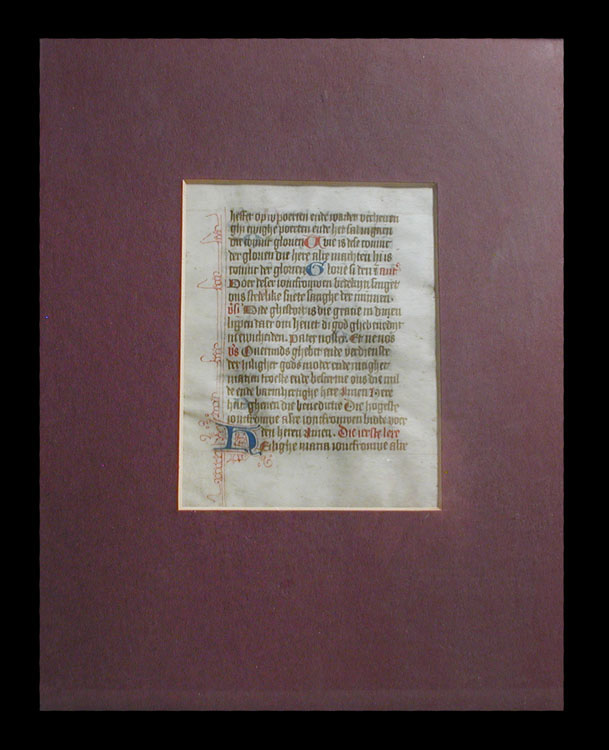 heffet op iv poerten ende wardet verheven
ghi ewighe poerten ende het sal ingaen
die coninc der glorien Wie is dese coninc
der glorien die here alre machten hi is
coninc der glorien Glorie si den
Doer deser ioncfrouwen biddet singet
ons stedelike suete sanghe der minnen
Uwe ghestort is die gracie in dinen
lippen daer om hevet di god ghebenedijt
in ewicheiden. Pater noster. Et ne nos
Overmids ghebet ende verdienste
der heiligher gods moeder ende maghet
marien troeste ende bescerme ons die mil
de ende barmhertighe here Amen Here
ghevet die benedictie Die hogeste
ioncfrouwe alre ioncfrouwen bidde voer
den heren Amen. Die ierste lere
Heilighe maria ioncfrouwe alre